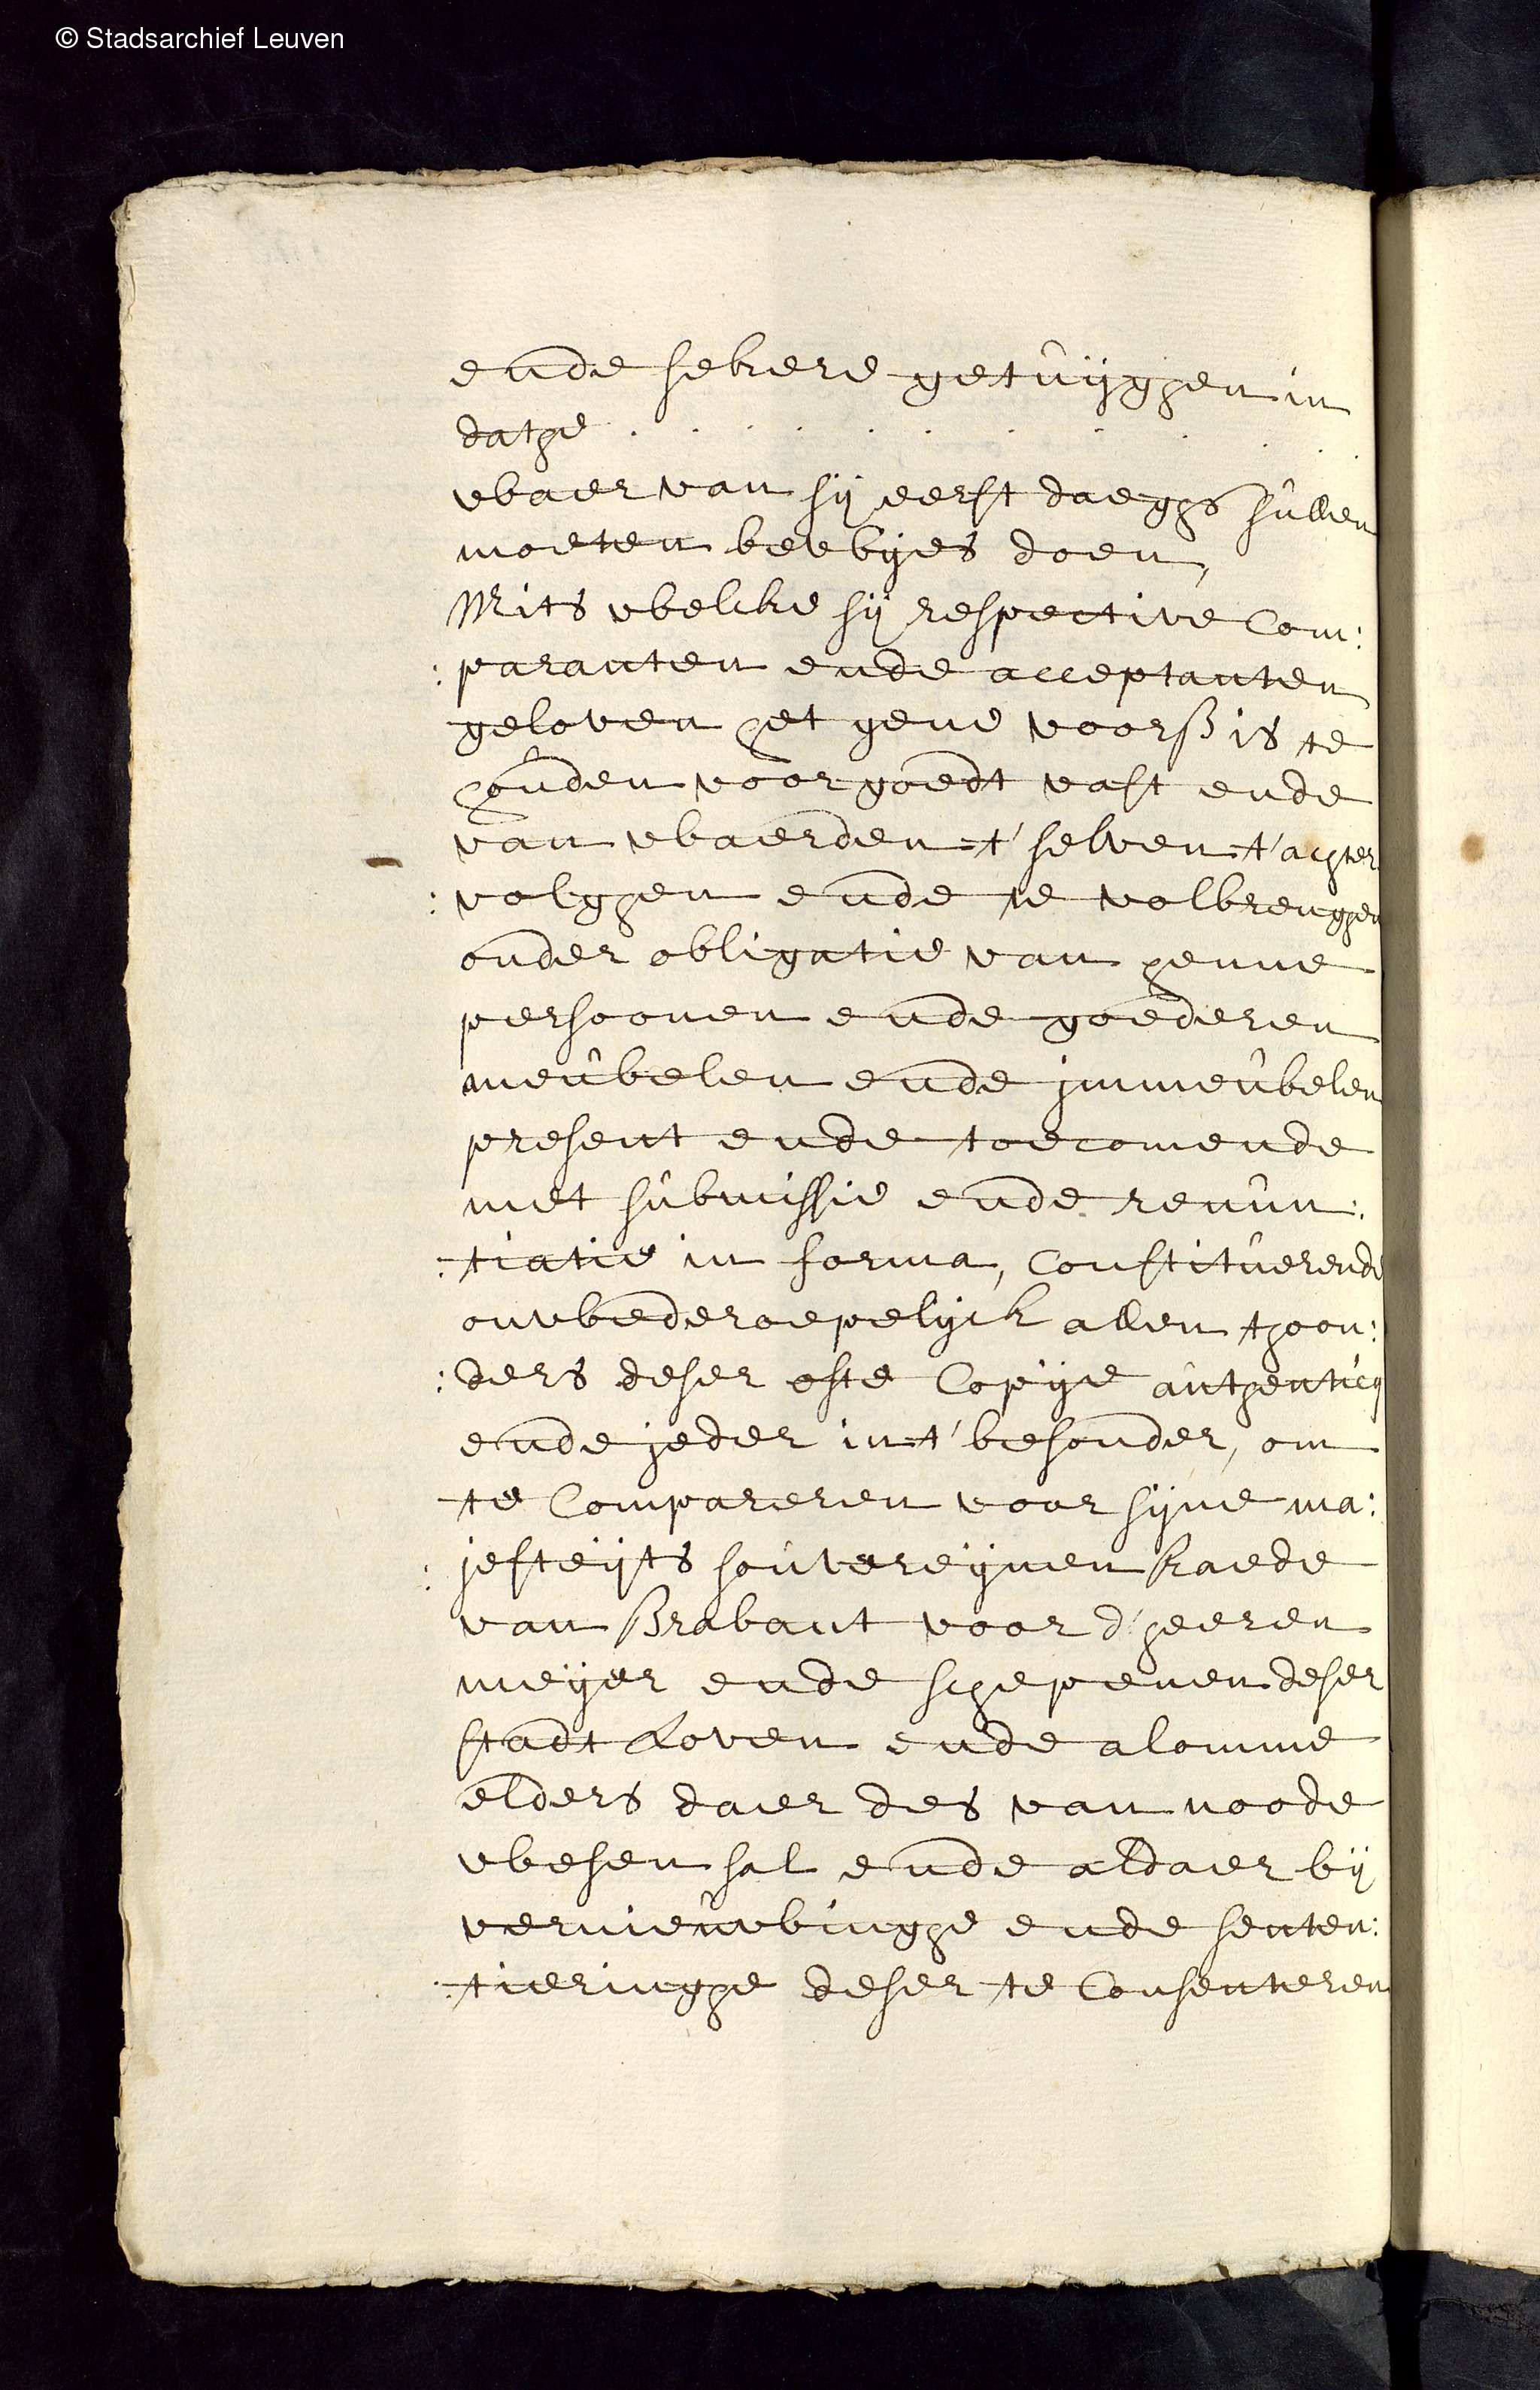 © Stadsarchief Leuven
ende sekere getuijghen in
dathe . . . . . . . . . .
waer van sij eerst daeghs sullen
moeten bewijes doen,
Mits welcke sij respective Com:
:paranten ende acceptanten
geloven het gene voors. is te
houden voor goedt vast ende
van waerden t' selven t'achter
:volghen ende te volbrenghen
onder obligatie van henne
persoonen ende goederen
meubelen ende immeubelen
present ende toecomende
met submissie ende renun:
:tiatie in forma, Constituerende
onwederoepelijck allen thoon:
:ders deser ofte Copije authenticq
ende jeder in t' besonder, om
te Compareren voor sijne ma:
:jesteijts souvereijnen Raede
van Brabant voor d'heeren
meijer ende schepenen deser
stadt Loven ende alomme
elders daer des van noode
wesen sal ende aldaer bij
vernieuwinghe ende senten:
:tieringhe deser te Consenteren